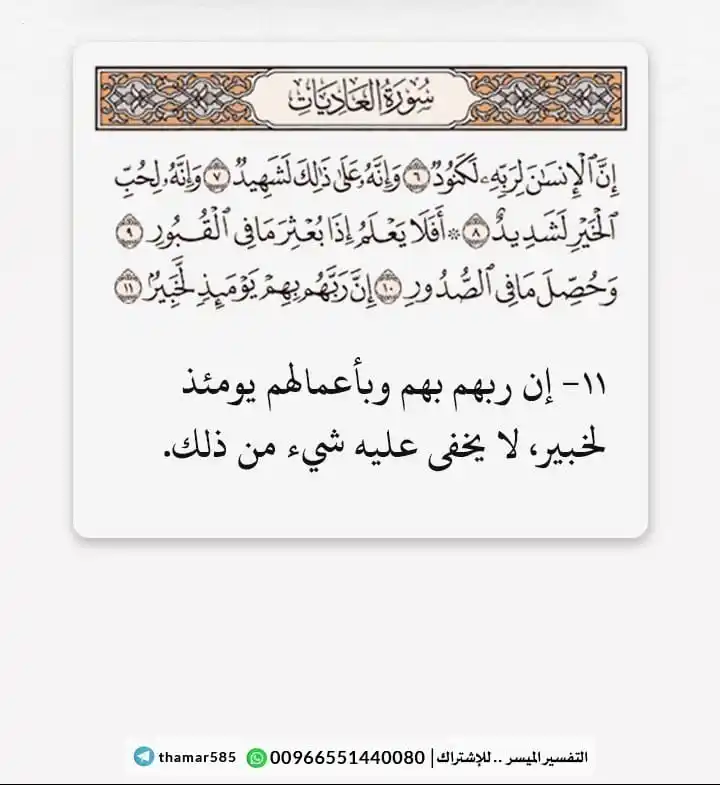 سُورَةُ العَادِيَاتِ
إِنَّ ٱلْإِنسَٰنَ لِرَبِّهِۦ لَكَنُودٌ ٦ وَإِنَّهُۥ عَلَىٰ ذَٰلِكَ لَشَهِيدٌ ٧ وَإِنَّهُۥ لِحُبِّ
ٱلْخَيْرِ لَشَدِيدٌ ٨ ۞ أَفَلَا يَعْلَمُ إِذَا بُعْثِرَ مَا فِى ٱلْقُبُورِ ٩
وَحُصِّلَ مَا فِى ٱلصُّدُورِ ١٠ إِنَّ رَبَّهُم بِهِمْ يَوْمَئِذٍ لَّخَبِيرٌۢ ١١
١١- إن ربهم بهم وبأعمالهم يومئذ
لخبير، لا يخفى عليه شيء من ذلك.
التفسير الميسر .. للإشتراك | 00966551440080 thamar585